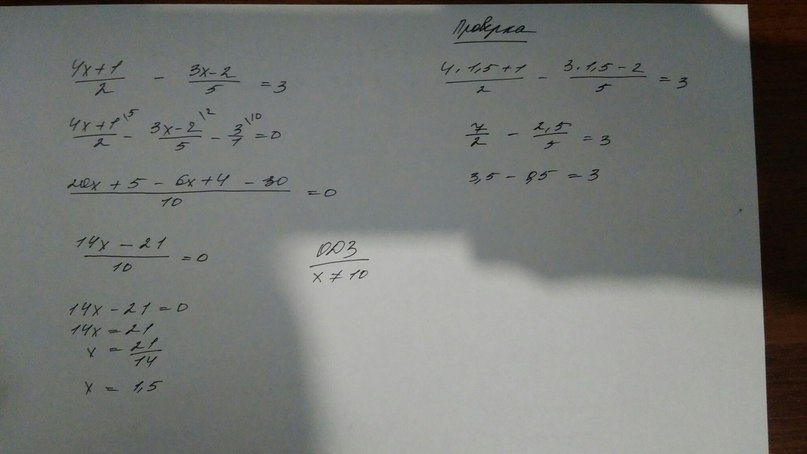 4x+1/2 - 3x-2/5 = 3
4x+1\5/2 - 3x-2\2/5 - 3\10/1 = 0
20x + 5 - 6x + 4 - 30/10 = 0
14x - 21/10 = 0
14x - 21 = 0
14x = 21
x = 21/14
x = 1,5
ОДЗ
x ≠ 10
Проверка
4·1,5+1/2 - 3·1,5-2/5 = 3
7/2 - 2,5/5 = 3
3,5 - 0,5 = 3